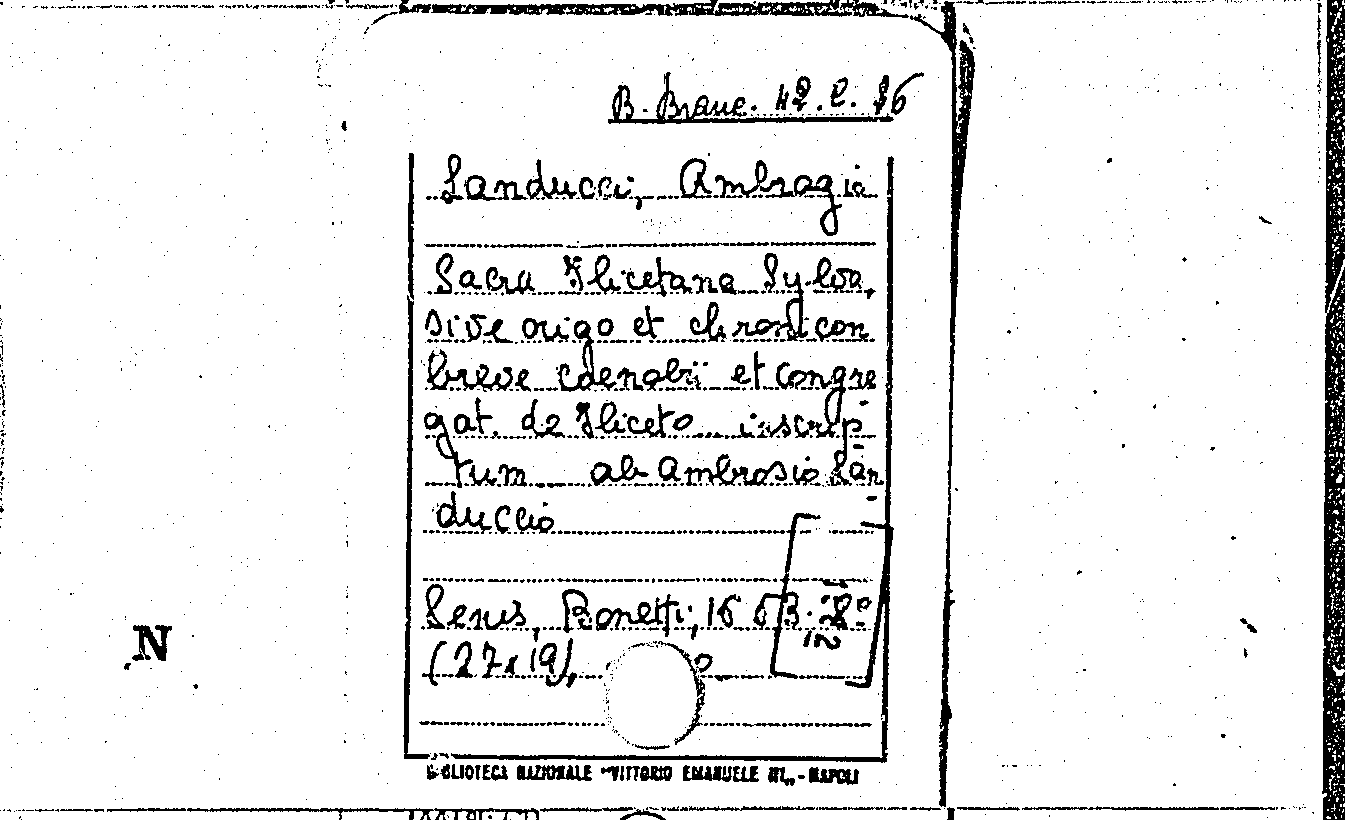 B. Branc. 42. C. 36
Landucci, Ambrogio
Sacra Ilicetana Sylva,
sive origo et chronicon
breve coenobii et congre
gat. de Iliceto inscrip-
tum ab Ambrosio Lan-
duccio
Senis, Bonetti, 1653. 8°
(27x19),
N
BIBLIOTECA NAZIONALE "VITTORIO EMANUELE III„ - NAPOLI